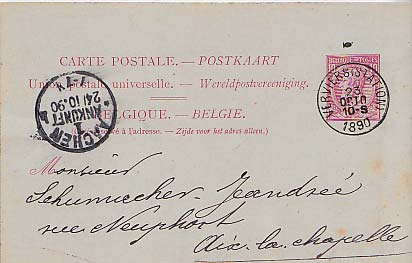 CARTE POSTALE. — POSTKAART
Union postale universelle. — Wereldpostvereeniging.
BELGIQUE. — BELGIE.
(Côté réservé à l'adresse. — Zijde voor het adres alleen.)
VERVIERS (STATION)
23
OCT
10-S
1890
AACHEN
ANKUNFT
24/10.90
Monsieur
Schumacher-Jeandrée
rue Neuphort
Aix-la-chapelle